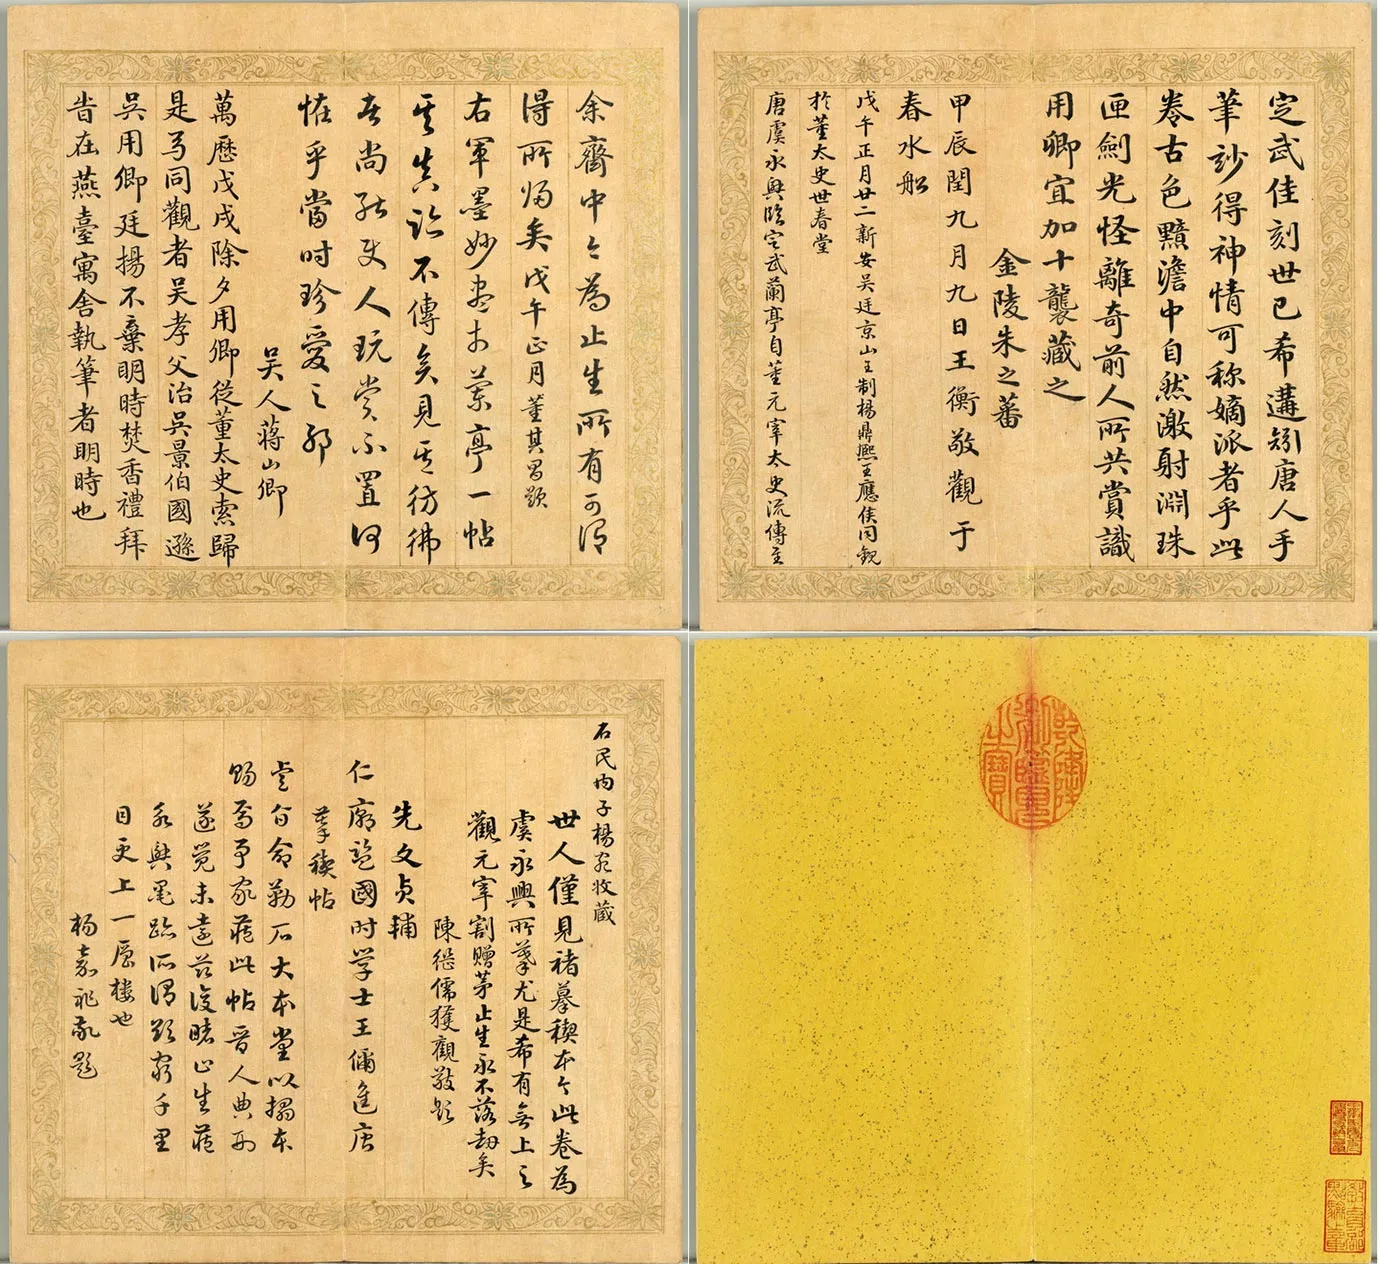 定武佳刻世已希遘矧唐人手
筆妙得神情可称嫡派者乎此
卷古色黯澹中自然激射淵珠
匣劍光怪離奇前人所共賞識
用卿宜加十襲藏之
金陵朱之蕃
甲辰閏九月九日王衡敬觀于
春水船
戊午正月廿二新安吳廷京山王制楊鼎熙王應侯同觀
於董太史世春堂
唐虞永興臨定武蘭亭自董元宰太史流傳至
余齋中今為止生所有可謂
得所歸矣戊午正月董其昌題
右軍墨妙盡於蘭亭一帖
其真跡不傳矣見其彷彿
者尚能使人玩賞不置何
怪乎當时珍愛之耶
吳人蔣山卿
萬曆戊戌除夕用卿從董太史索歸
是日同觀者吳孝父治吳景伯國遜
吳用卿廷楊不棄明時焚香禮拜
皆在燕臺寓舍執筆者明時也
石民內子楊宛收藏
世人僅見褚摹稧本今此卷為
虞永興所摹尤是希有無上之
觀元宰割贈茅止生永不落劫矣
陳繼儒獲觀敬題
先文貞輔
仁廟監國时学士王偁進唐
摹稧帖
旨命勒石大本堂以搨本
賜焉予家藏此帖晉人典刑
遂覺未遠茲復睹止生藏
永興墨跡所謂欲窮千里
目更上一層樓也
楊嘉祚敬題
乾隆御覽之寶